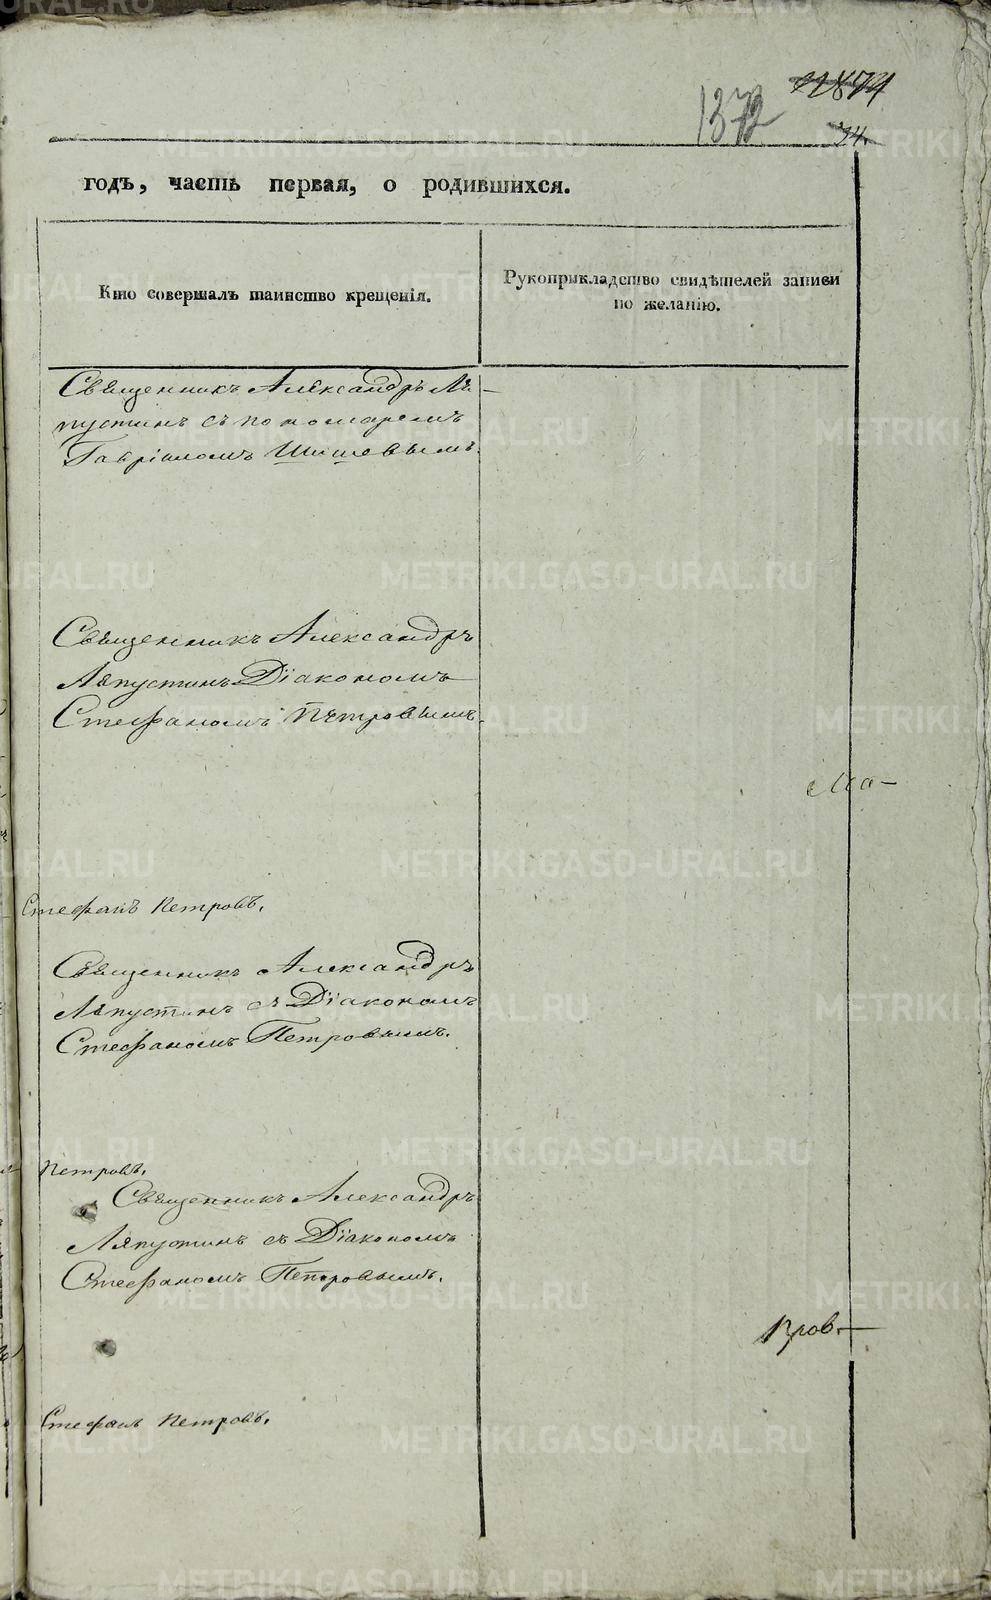 1372
годъ, часть первая, о родившихся.
Кто совершалъ таинство крещенія.
Рукоприкладство свидѣтелей записи по желанію.
Священникъ Александръ Ля-
пустинъ съ пономаремъ
Гавріиломъ Шишевымъ.
Священникъ Александръ
Ляпустинъ Діакономъ
Стефаномъ Петровымъ.
Ма-
Стефанъ Петровъ.
Священникъ Александръ
Ляпустинъ съ Діакономъ
Стефаномъ Петровымъ.
Петровъ.
Священникъ Александръ
Ляпустинъ съ Діакономъ
Стефаномъ Петровымъ.
Пров-
Стефанъ Петровъ.
METRIKI.GASO-URAL.RU